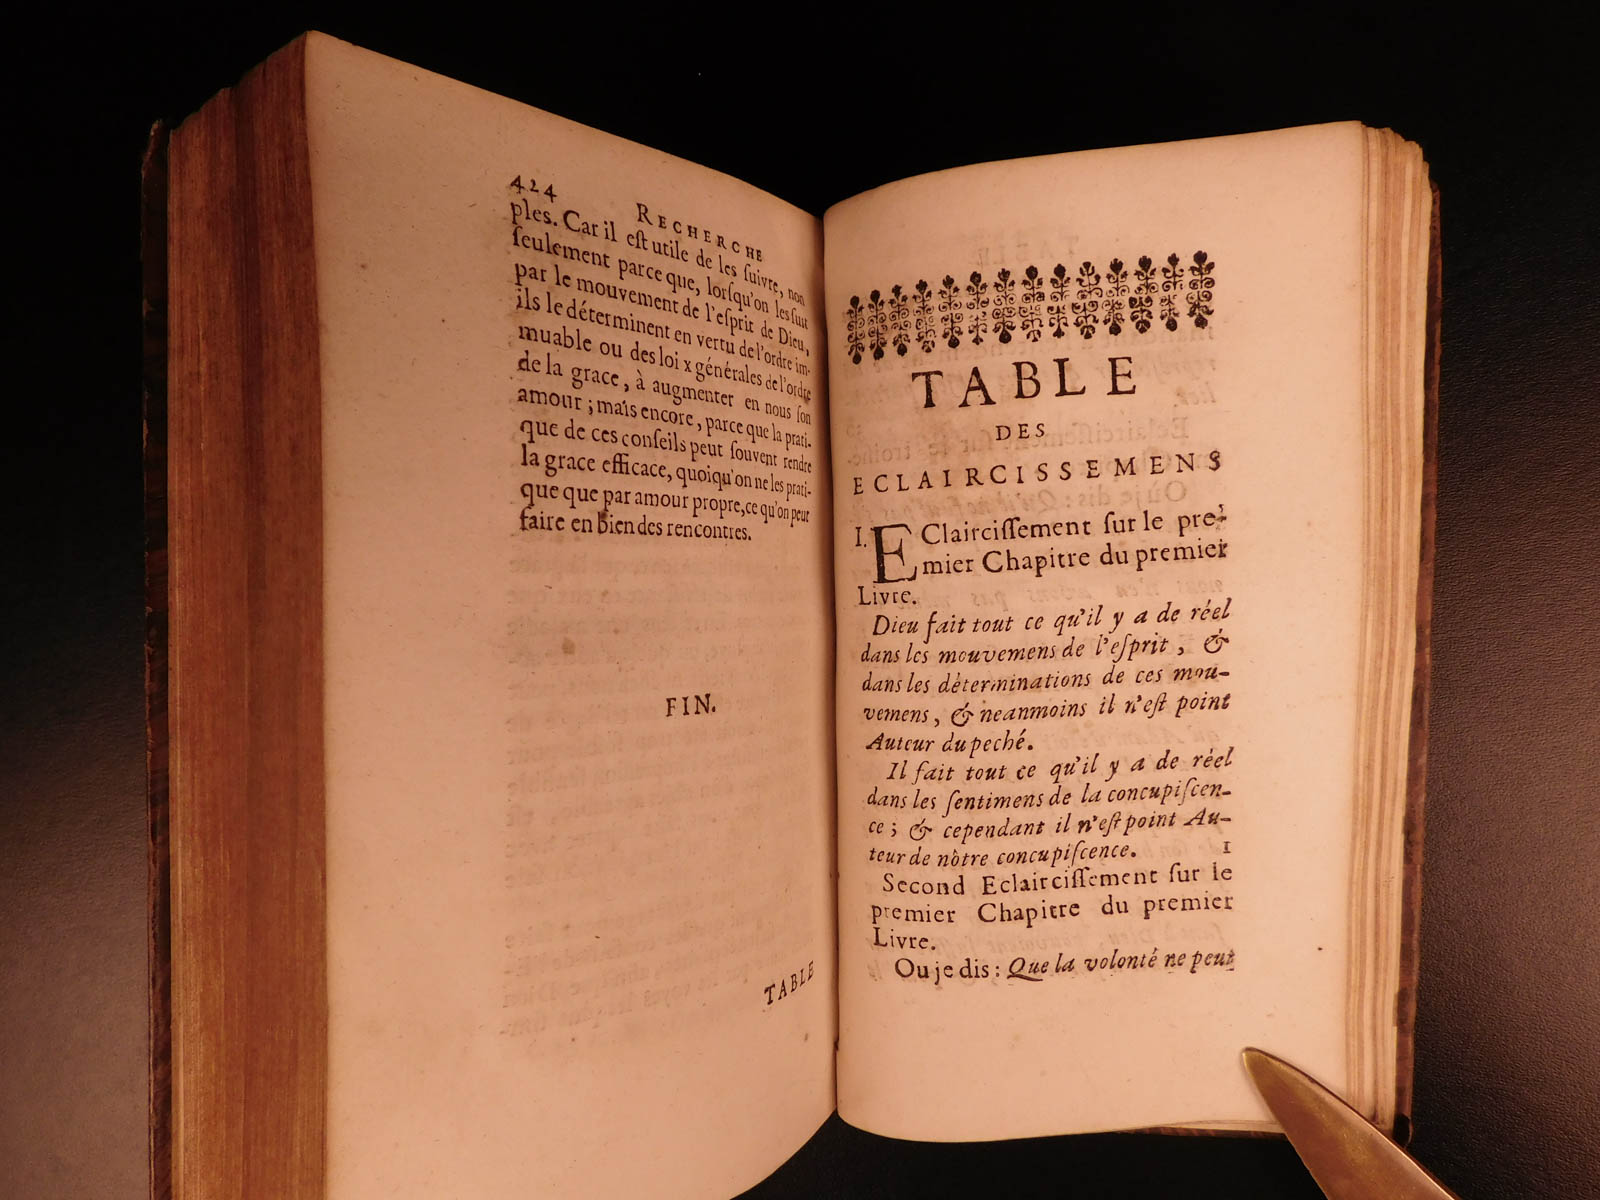 424
RECHERCHE
ples. Car il est utile de les suivre, non
seulement parce que, lorsqu'on les suit
par le mouvement de l'esprit de Dieu,
ils le déterminent en vertu de l'ordre im-
muable ou des loix générales de l'ordre
de la grace, à augmenter en nous son
amour; mais encore, parce que la prati-
que de ces conseils peut souvent rendre
la grace efficace, quoiqu'on ne les prati-
que que par amour propre, ce qu'on peut
faire en bien des rencontres.
FIN.
TABLE
TABLE
DES
ECLAIRCISSEMENS
I. EClaircissement sur le pre-
mier Chapitre du premier
Livre.
Dieu fait tout ce qu'il y a de réel
dans les mouvemens de l'esprit, &
dans les déterminations de ces mou-
vemens, & neanmoins il n'est point
Auteur du peché.
Il fait tout ce qu'il y a de réel
dans les sentimens de la concupiscen-
ce; & cependant il n'est point Au-
teur de nôtre concupiscence. 1
Second Eclaircissement sur le
premier Chapitre du premier
Livre.
Ou je dis: Que la volonté ne peut